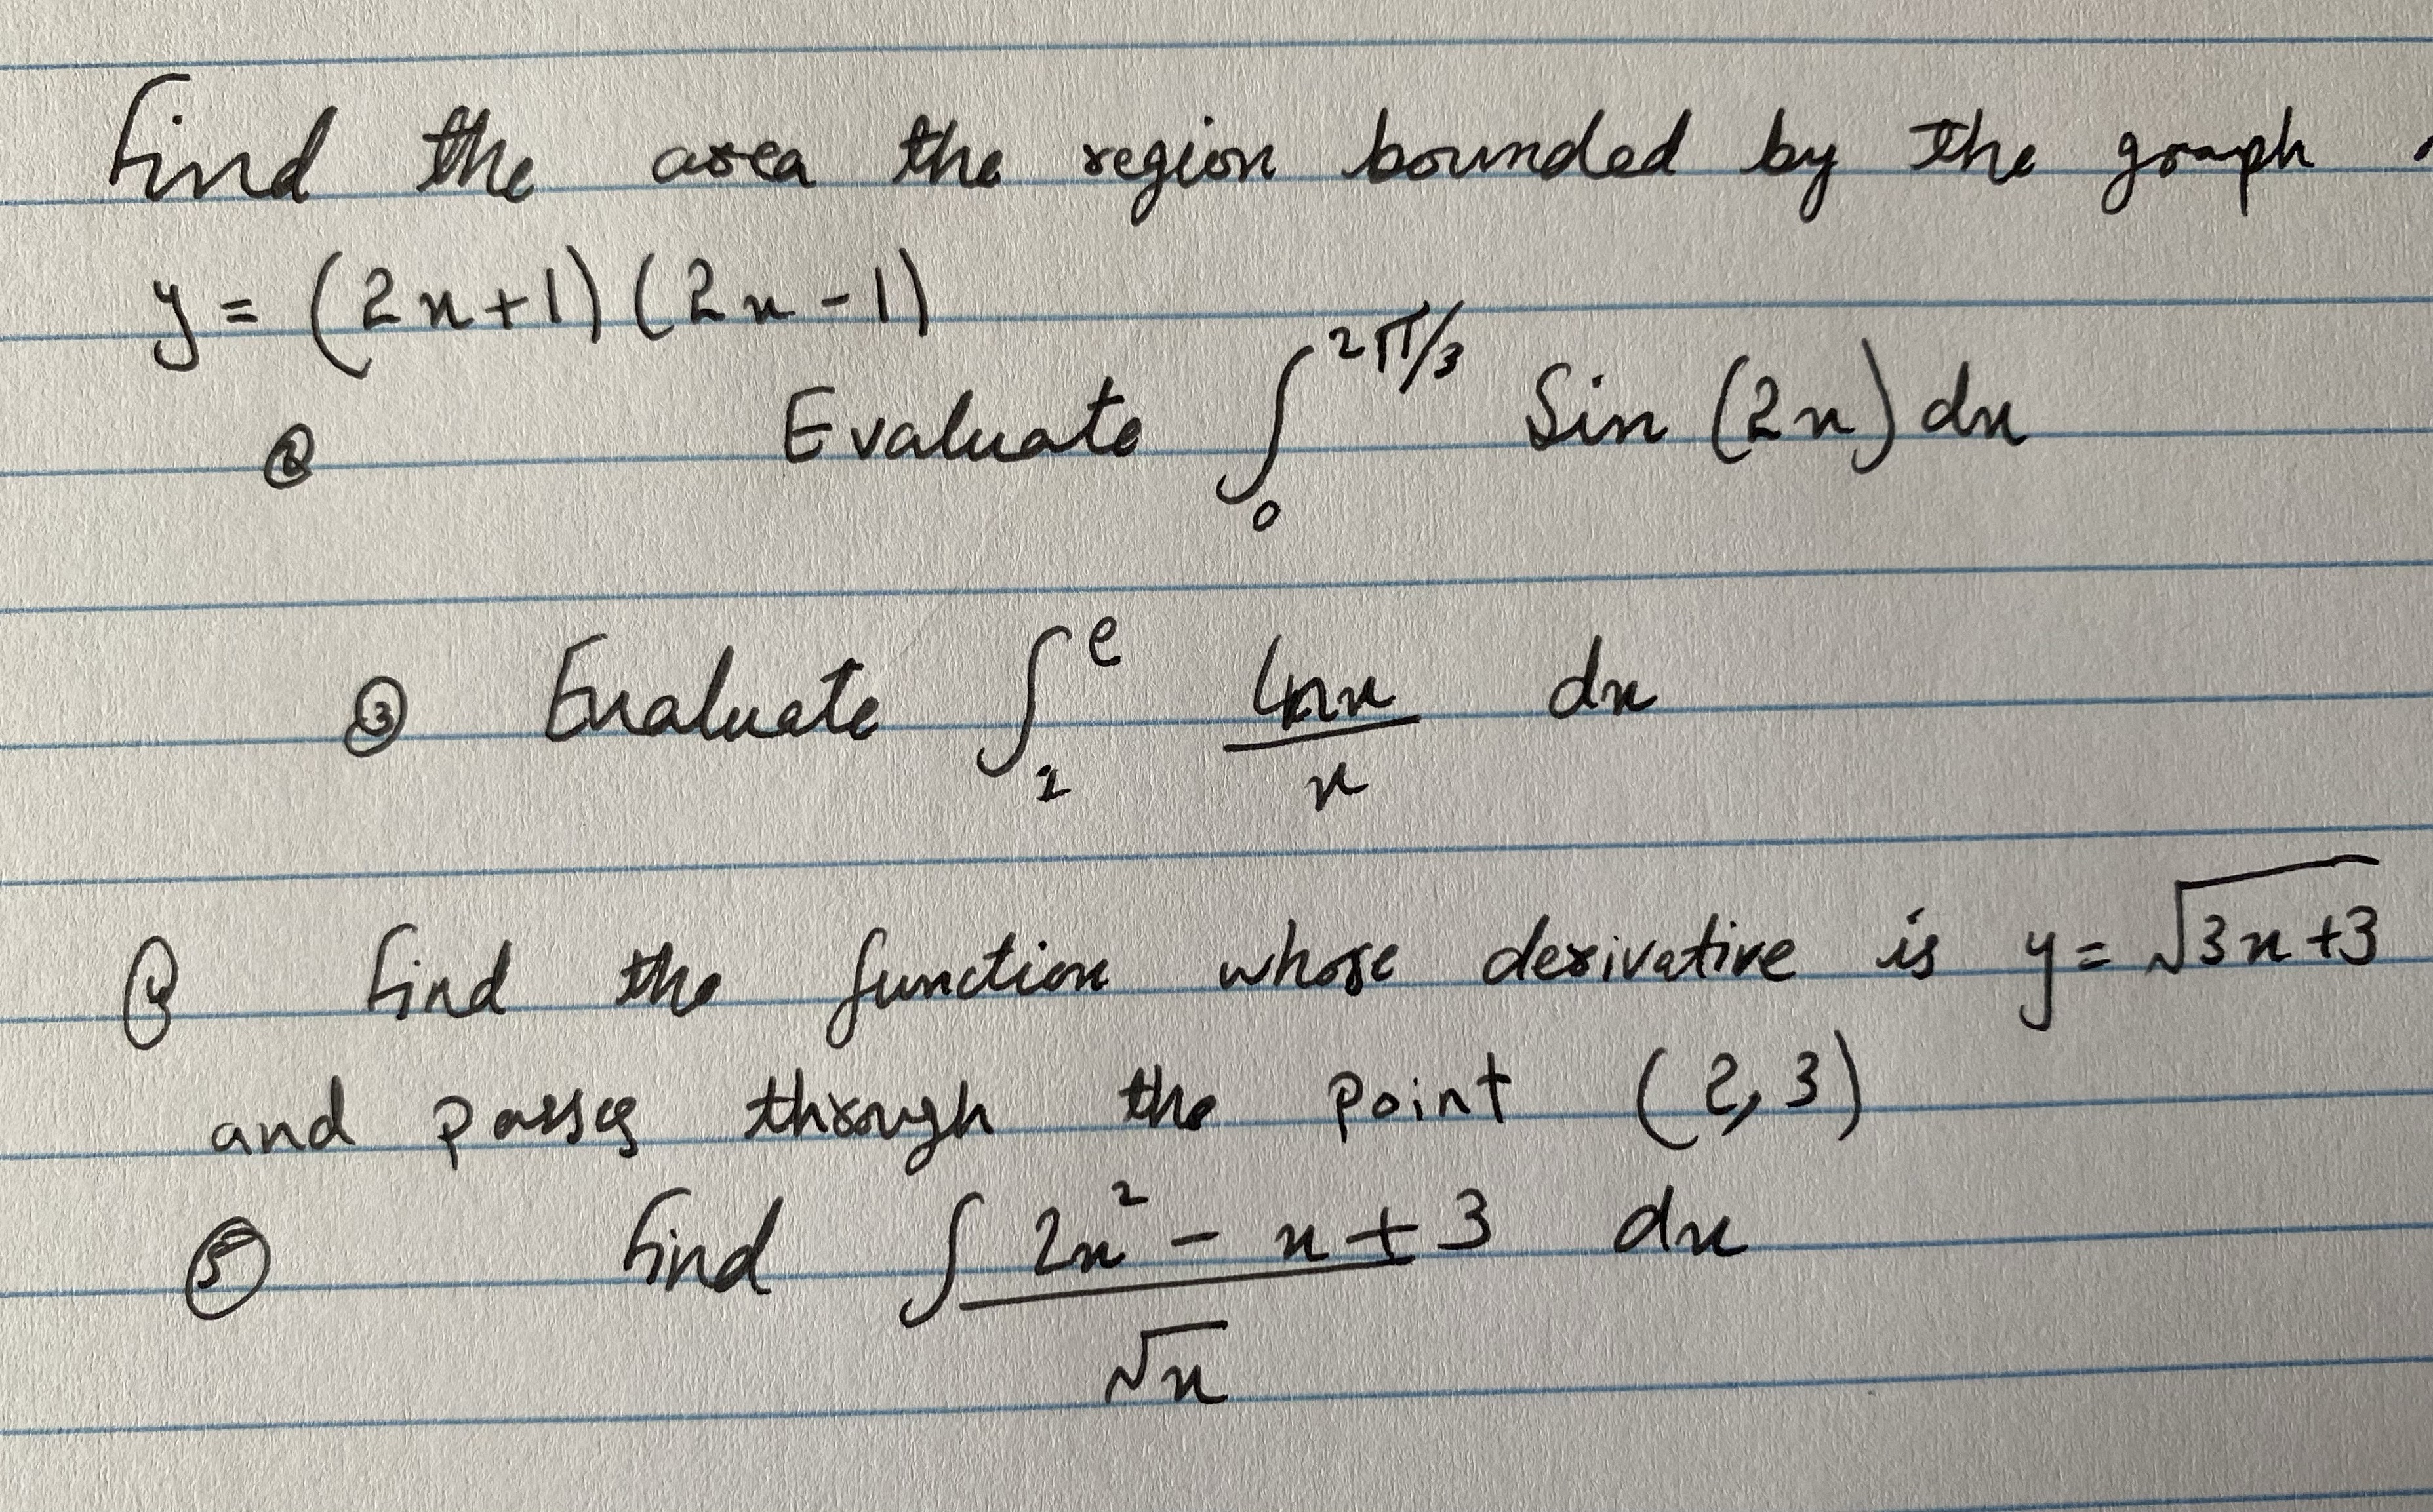 Find the area the region bounded by the graph
y = (2x+1)(2x-1)
② Evaluate ∫₀^{2π/3} Sin (2x) dx
③ Evaluate ∫₁^e lnx/x dx
Find the function whose derivative is y = √(3x+3)
and passes through the point (2,3)
⑤ Find ∫ (2x² - x + 3)/√x dx